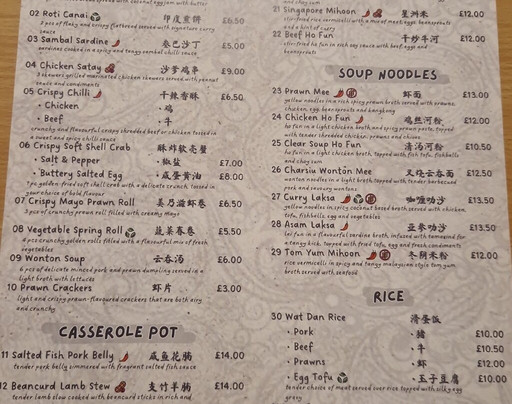 02 Roti Canai 印度煎饼 £6.50
2 pcs of flaky and crispy flatbread served with signature curry
sauce
03 Sambal Sardine 叁巴沙丁 £5.00
sardines cooked in a spicy and tangy sambal chilli sauce
04 Chicken Satay 沙爹鸡串 £9.00
3 skewers grilled marinated chicken skewers served with peanut
sauce and condiments
05 Crispy Chilli 干辣香酥 £6.50
• Chicken • 鸡
• Beef • 牛
crunchy and flavourful crispy shredded beef or chicken tossed in
a sweet and spicy chilli sauce
06 Crispy Soft Shell Crab 酥炸软壳蟹
• Salt & Pepper • 椒盐 £7.00
• Buttery Salted Egg • 咸蛋黄油 £8.00
1 pc golden-fried soft shell crab with a delicate crunch, tossed in
your choice of bold flavour
07 Crispy Mayo Prawn Roll 美乃滋虾卷 £6.50
3 pcs of crunchy prawn rolls filled with creamy mayo
08 Vegetable Spring Roll 蔬菜春卷 £5.50
4 pcs crunchy golden rolls filled with a flavourful mix of fresh
vegetables
09 Wonton Soup 云吞汤 £6.00
6 pcs of delicate minced pork and prawn dumpling served in a
light broth with lettuce
10 Prawn Crackers 虾片 £3.00
light and crispy prawn-flavoured crackers that are both airy
and crunchy
CASSEROLE POT
11 Salted Fish Pork Belly 咸鱼花腩 £14.00
tender pork belly simmered with fragrant salted fish sauce
12 Beancurd Lamb Stew 支竹羊腩 £14.00
tender lamb slow cooked with beancurd sticks in rich and
21 Singapore Mihoon 星洲米 £12.00
stir-fried rice vermicelli with a mix of meat, eggs, beansprouts
and a hint of curry
22 Beef Ho Fun 干炒牛河 £12.00
stir-fried ho fun in rich soy sauce with beef, eggs and
beansprouts
SOUP NOODLES
23 Prawn Mee 虾面 £13.00
yellow noodles in a rich spicy prawn broth served with prawns,
chicken, egg, beansprouts and kangkong
24 Chicken Ho Fun 鸡丝河粉 £12.00
ho fun in a light chicken broth and spicy prawn paste, topped
with tender shredded chicken, prawns and chives
25 Clear Soup Ho Fun 清汤河粉 £10.50
ho fun in a light chicken broth, topped with fish tofu, fishballs
and choy sum
26 Charsiu Wonton Mee 叉烧云吞面 £12.50
wonton noodles in a light broth, topped with tender barbecued
pork and savoury wontons
27 Curry Laksa 咖喱叻沙 £13.50
yellow noodles in spicy coconut based broth served with chicken,
tofu, fishballs, egg and vegetables
28 Asam Laksa 亚叁叻沙 £13.50
lai fun in a flavourful sardine broth, infused with tamarind for
a tangy kick, topped with fried tofu, egg and fresh condiments
29 Tom Yum Mihoon 冬阴米粉 £12.00
rice vermicelli in spicy and tangy malaysian style tom yum
broth served with seafood
RICE
30 Wat Dan Rice 滑蛋饭
• Pork • 猪 £10.00
• Beef • 牛 £10.50
• Prawns • 虾 £12.00
• Egg Tofu • 玉子豆腐 £10.00
tender choice of meat served over rice topped with silky egg
gravy